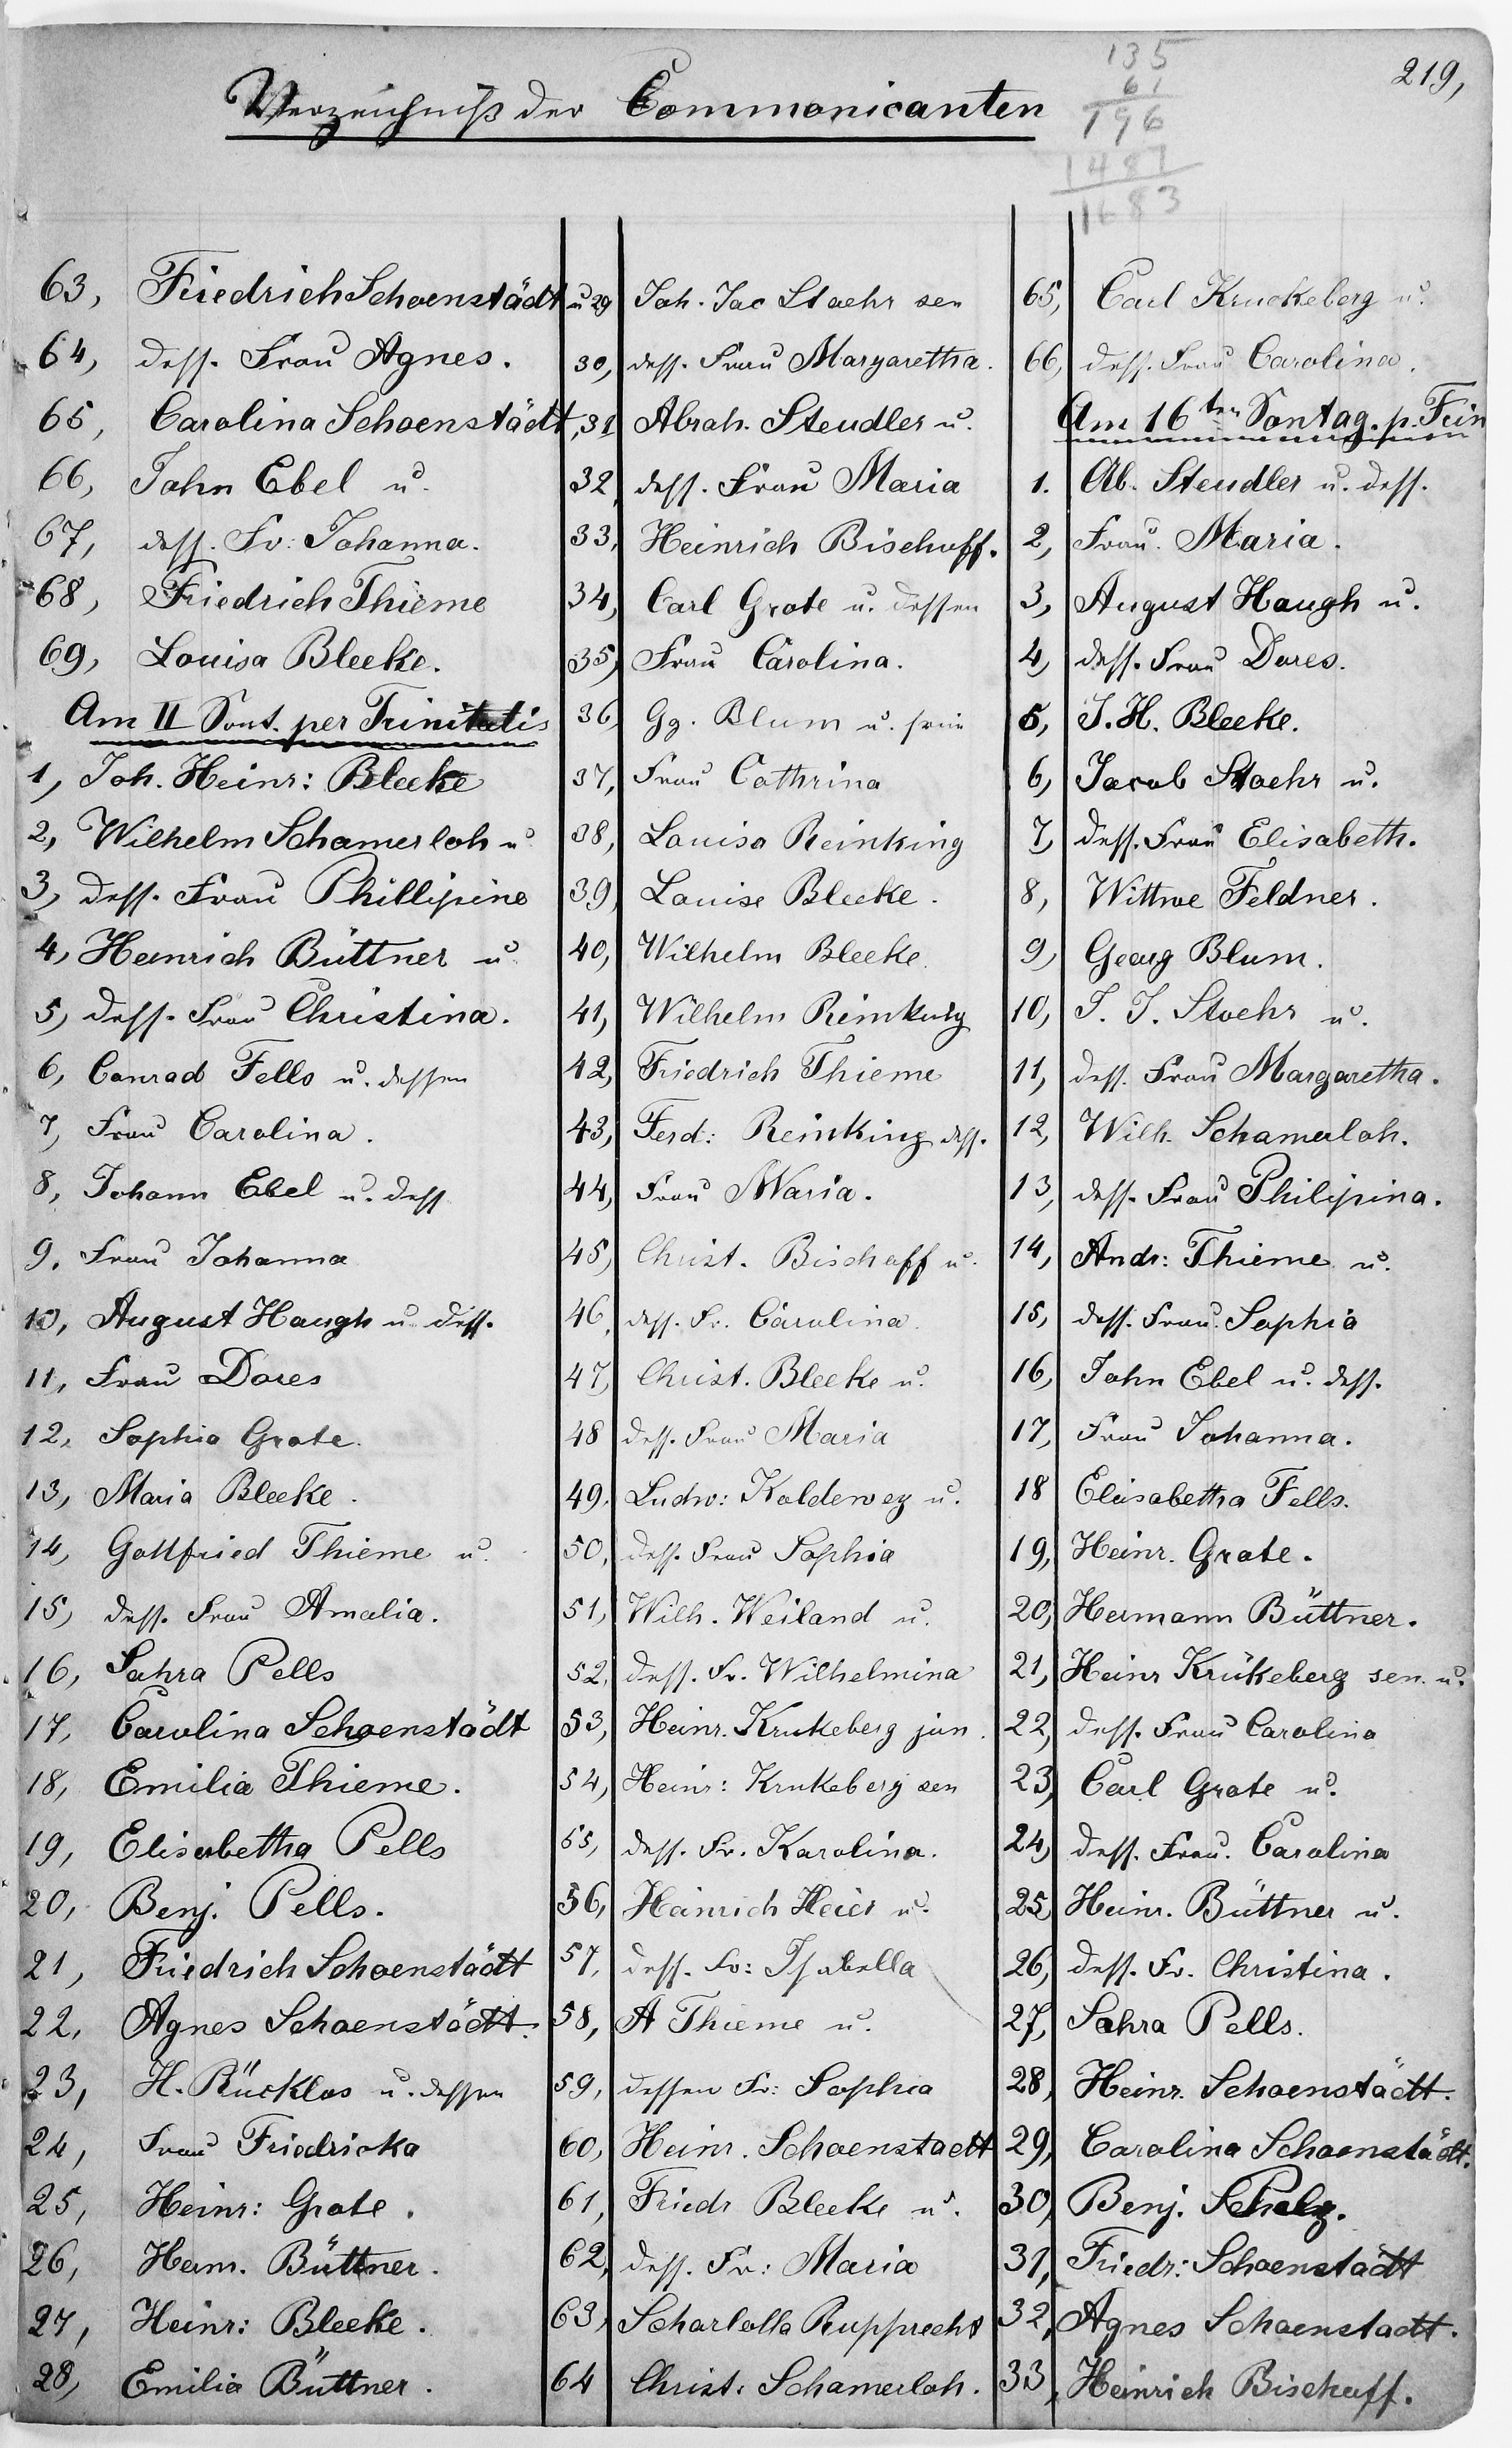 219,
135
61
196
1487
1683
Verzeichniß der Communicanten
63, Friedrich Schoenstädt u
64, dess. Frau Agnes.
65, Carolina Schoenstädt,
66, John Ebel u.
67, dess. Fr: Johanna.
68, Friedrich Thieme
69, Louisa Bleeke.
Am II Sont. per Trinitatis
1, Joh. Heinr: Bleeke
2, Wilhelm Schamerloh u
3, dess. Frau Phillipine
4, Heinrich Büttner u
5, dess. Frau Christina.
6, Conrad Fells u. dessen
7, Frau Carolina.
8, Johann Ebel u. dess
9, Frau Johanna
10, August Haugh u. dess.
11, Frau Dores
12, Sophia Grote.
13, Maria Bleeke.
14, Gottfried Thieme u.
15, dess. Frau Amalia.
16, Sahra Pells
17, Carolina Schoenstädt
18, Emilia Thieme.
19, Elisabetha Pells
20, Benj. Pells.
21, Friedrich Schoenstädt
22, Agnes Schoenstädt.
23, H. Rücklos u. dessen
24, Frau Friedricka
25, Heinr: Grote.
26, Herm. Büttner.
27, Heinr: Bleeke.
28, Emilia Büttner.
29 Joh. Jac Stoehr sen
30, dess. Frau Margaretha.
31 Abrah. Steudler u.
32 dess. Frau Maria
33, Heinrich Bischoff.
34, Carl Grote u. dessen
35, Frau Carolina.
36 Gg. Blum u. seine
37, Frau Cathrina
38, Louisa Reinking
39, Louise Bleeke.
40, Wilhelm Bleeke.
41, Wilhelm Reinking
42, Friedrich Thieme
43, Ferd: Reinking dess.
44, Frau Maria.
45, Christ. Bischoff u.
46, dess. Fr. Carolina.
47, Christ. Bleeke u.
48 dess. Frau Maria
49, Ludw: Koldewey u.
50, dess. Frau Sophia
51, Wilh. Weiland u.
52, dess. Fr. Wilhelmina
53, Heinr. Krukeberg jun.
54, Heinr: Krukeberg sen
55, dess. Fr. Karolina.
56, Heinrich Heier u.
57, dess. Fr: Isabella
58, A Thieme u.
59, dessen Fr: Sophia
60, Heinr. Schoenstaedt
61, Friedr Bleeke u.
62, dess. Fr: Maria
63, Scharlotta Rupprecht
64 Christ. Schamerloh.
65, Carl Kruckeberg u.
66, dess. Frau Carolina.
Am 16ten Sontag. p. Trin
1. Ab. Steudler u. dess.
2, Frau. Maria.
3, August Haugh u.
4, dess. Frau Dores.
5, J. H. Bleeke.
6, Jacob Stoehr u.
7, dess. Frau Elisabeth.
8, Wittwe Feldner.
9, Georg Blum.
10, J. J. Stoehr u.
11, dess. Frau Margaretha.
12, Wilh. Schamerloh.
13, dess. Frau Philipina.
14, Andr: Thieme u.
15, dess. Frau. Sophia
16, John Ebel u. dess.
17, Frau Johanna.
18 Elisabetha Fells.
19, Heinr. Grote.
20, Hermann Büttner.
21, Heinr Krükeberg sen. u.
22, dess. Frau Carolina
23, Carl Grote u.
24, dess. Frau. Carolina
25, Heinr. Büttner u.
26, dess. Fr. Christina.
27, Sahra Pells.
28, Heinr. Schoenstädt.
29, Carolina Schoenstädt.
30, Benj.
31, Friedr: Schoenstädt
32, Agnes Schoenstadt.
33, Heinrich Bischoff.